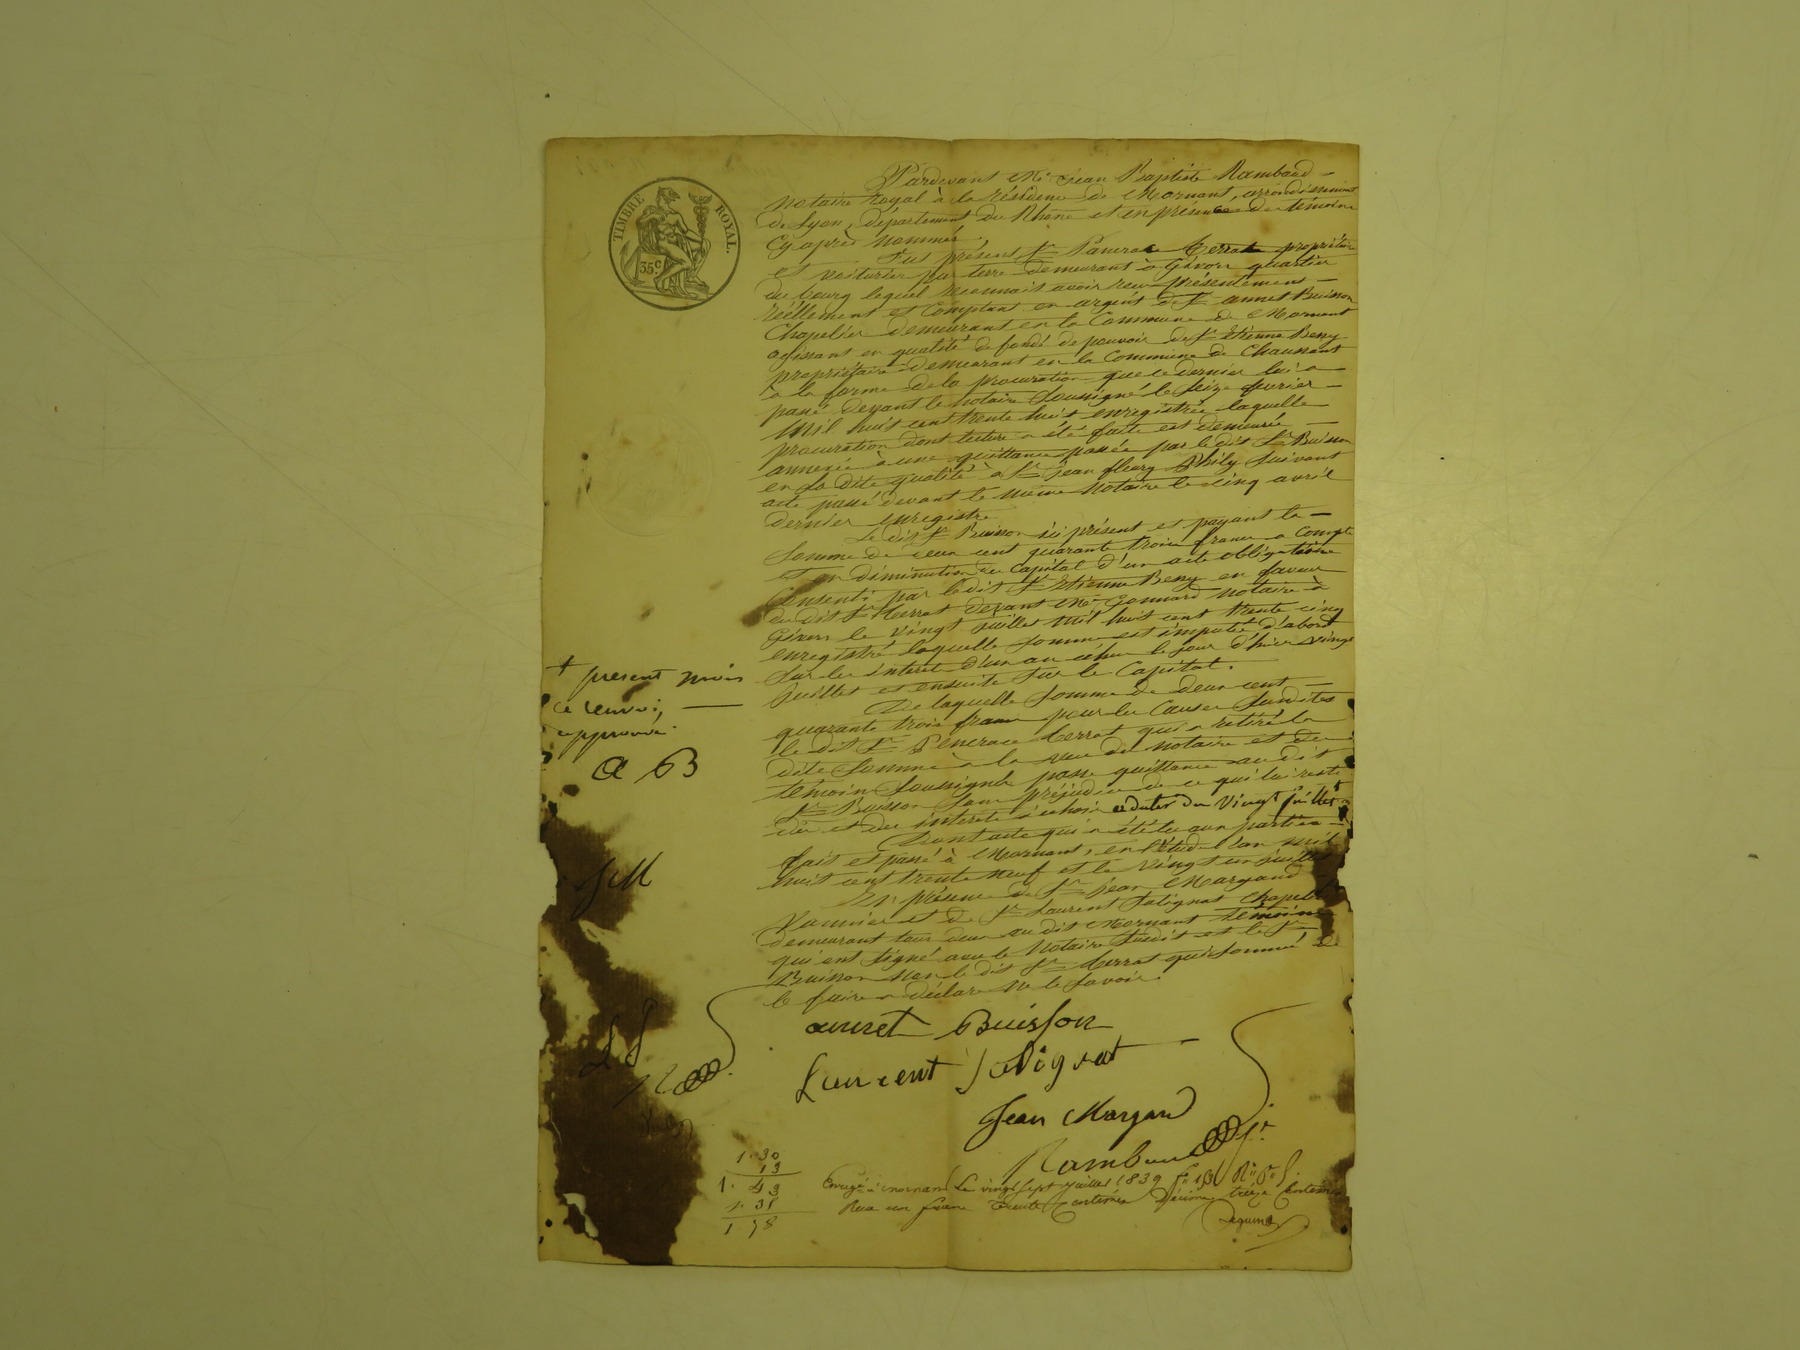 TIMBRE ROYAL.
35c
Pardevant Me Jean Baptiste Rambaud
notaire royal à la résidence de Mornant, arrondissement
de Lyon, département du Rhône et en présence des témoins
cy après nommés.
Fut présent Sr Pancrace Terrat propriétaire
et voiturier par terre demeurant à Givors quartier
du bourg lequel reconnait avoir reçu présentement
réellement et comptant en argent de Sr annet Buisson
Chapelier demeurant en la Commune de Mornant
agissant en qualité de fondé de pouvoir de Sr Etienne Beny
propriétaire demeurant en la Commune de Chaussant
à la forme de la procuration que ce dernier lui a
passé devant le notaire soussigné le seize fevrier
mil huit cent trente huit enregistrée laquelle
procuration dont lecture a été faite est demeurée
annexée à une quittance passée par le dit Sr Buisson
en sa dite qualité à Sr Jean fleury Phily suivant
acte passé devant le même notaire le cinq avril
dernier enregistré
Le dit Sr Buisson ici présent et payant la
somme de deux cent quarante trois francs a compte
et en diminution du capital d'un acte obligatoire
consenti par le dit Sr Etienne Beny en faveur
du dit Sr Terrat devant Me Gonnard notaire à
Givors le vingt juillet mil huit cent trente cinq
enregistré laquelle somme est imputée d'abord
sur les intérêt d'un an échu le jour d'hier vingt
juillet et ensuite sur le Capital.
De laquelle somme de deux cent
quarante trois francs pour les causes susdites
le dit Sr Pancrace Terrat qui a retiré la
dite somme à la vue du notaire et des
témoins soussignés passe quittance au dit
Sr Buisson sans préjudice de ce qui lui reste
dû et des intérêts à échoir à dater du vingt juillet +
Dont acte qui a été lu aux parties
fait et passé à Mornant, en l'étude l'an mil
huit cent trente neuf et le vingt un juillet
En présence de Sr Jean Margand
Vannier et de Sr Laurent Salignat Chapelier
demeurant tous deux au dit Mornant témoins
qui ont signé avec le notaire susdit et le Sr
Buisson non le dit Sr Terrat qui sommé de
le faire a déclaré ne le savoir.
+ present mois
ce renvoi,
approuvé.
a B
JM
LS
R
annet Buisson
Laurent Salignat
Jean Margand
Rambaud
1. 30
13
1. 43
1. 35
1 78
Enregé à mornant Le vingt sept juillet 1839 fo 131 Ro
Reçu un franc Trente Centimes Décime treize Centimes